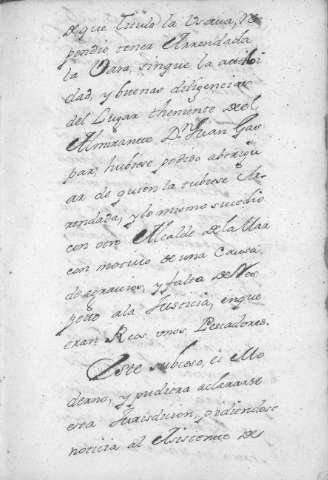 de que titulo la usava, res
pondio tenea Arrendada
la Vara, sin que la activi
dad, y buenas diligencias
del Lugar theniente de el
Almirante Dn. Juan Gas
par, hubiese podido aberigu
ar de quien la tubiese Ar
rendada, y lo mismo sucedio
con otro Alcalde de la Mar
con motivo de una Causa
de agravios, y falta de Res
petto a la Justicia, en que
eran Reos unos Pescadores.
Este subceso, es Mo
derno, y pudiera aclararse
esta Jurisdicion, pidiendose
noticia al Asistente de